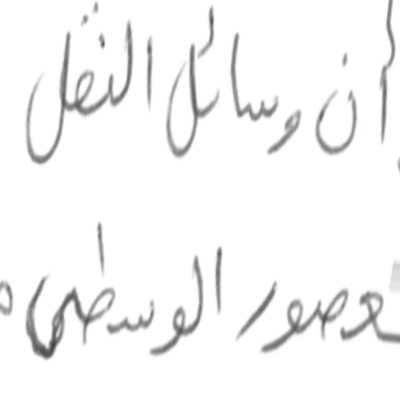 أن وسائل النقل
عصور الوسطى